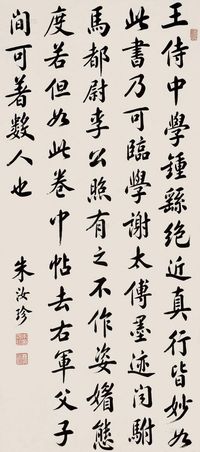 王侍中學鍾繇絕近真行皆妙如
此書乃可臨學謝太傅墨迹閂駙
馬都尉李公照有之不作姿媚態
度若但如此卷中帖去右軍父子
間可著數人也
朱汝珍